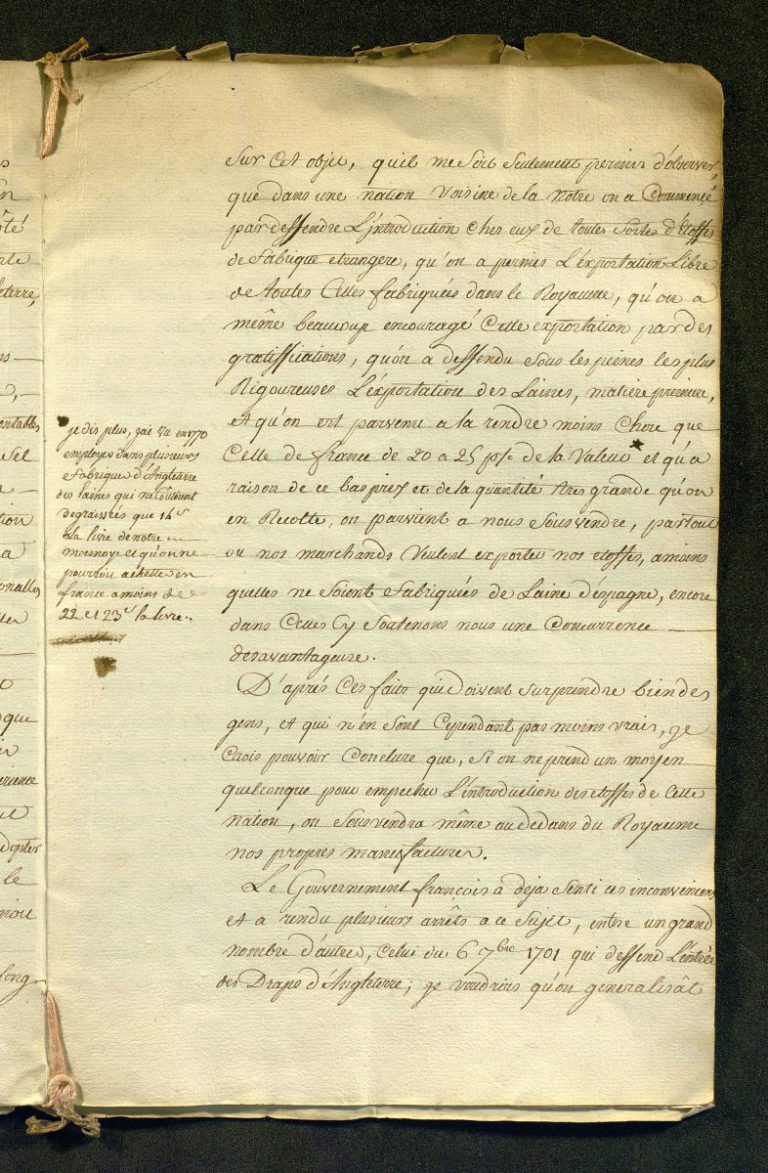 sur cet objet, qu'il me soit seulement permis d'observer,
que dans une nation voisine de la notre on a Commencé
par deffendre L'introduction ches eux de toutes sortes d'Etoffes
de fabrique etrangere, qu'on a permis L'exportation Libre
de toutes Celles fabriquées dans le Royaume, qu'on a
même beaucoup encouragé Cette exportation par des
gratiffications, qu'on a deffendu sous les peines les plus
Rigoureuses L'exportation des Laines, matiere premiere,
et qu'on est parvenu a la rendre moins Chere que
Celle de france de 20 a 25 p% de la Valeur * et qu'a
raison de ce bas prix et de la quantité tres grande qu'on
en Recolte, on parvient a nous sousvendre, partout
ou nos marchands veulent exporter nos etoffes, a moins
quelles ne soient fabriquées de Laine d'espagne, encore
dans Celles Cy soutenons nous une Concurrence
desavantageuse.
D'aprés Ces faits qui doivent surprendre bien des
gens, et qui n'en sont Cependant pas moins vrais, je
Crois pouvoir Conclure que, si on ne prend un moyen
quelconque pour empecher L'introduction des etoffes de Cette
nation, on sousvendra même au dedans du Royaume
nos propres manufactures.
Le Gouvernement françois a deja senti ces inconveniens
et a rendu plusieurs arrêts a ce sujet, entre un grand
nombre d'autres, Celui du 6 7bre 1701 qui deffend L'entrée
des Draps d'Angleterre; je voudrois qu'on generalisât
* je dis plus, j'ai vu en 1770
employer dans plusieurs
fabriques d'Angleterre
des laines qui ne coutoient
degraissées que 14 s
La livre de notre
monnoye et qu'on ne
pourroit achetter en
france a moins de
22 et 23 s la livre.
té
ale
leterre,
ontables
sel
tion
a
onalles
que
erience
dopter
le
Long